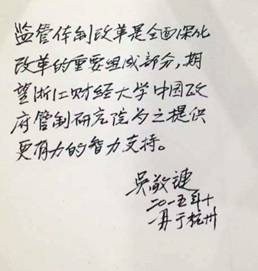 监管体制改革是全面深化
改革的重要组成部分，期
望浙江财经大学中国政
府管制研究院为之提供
更有力的智力支持。
吴敬琏
二〇一五年十
一月于杭州